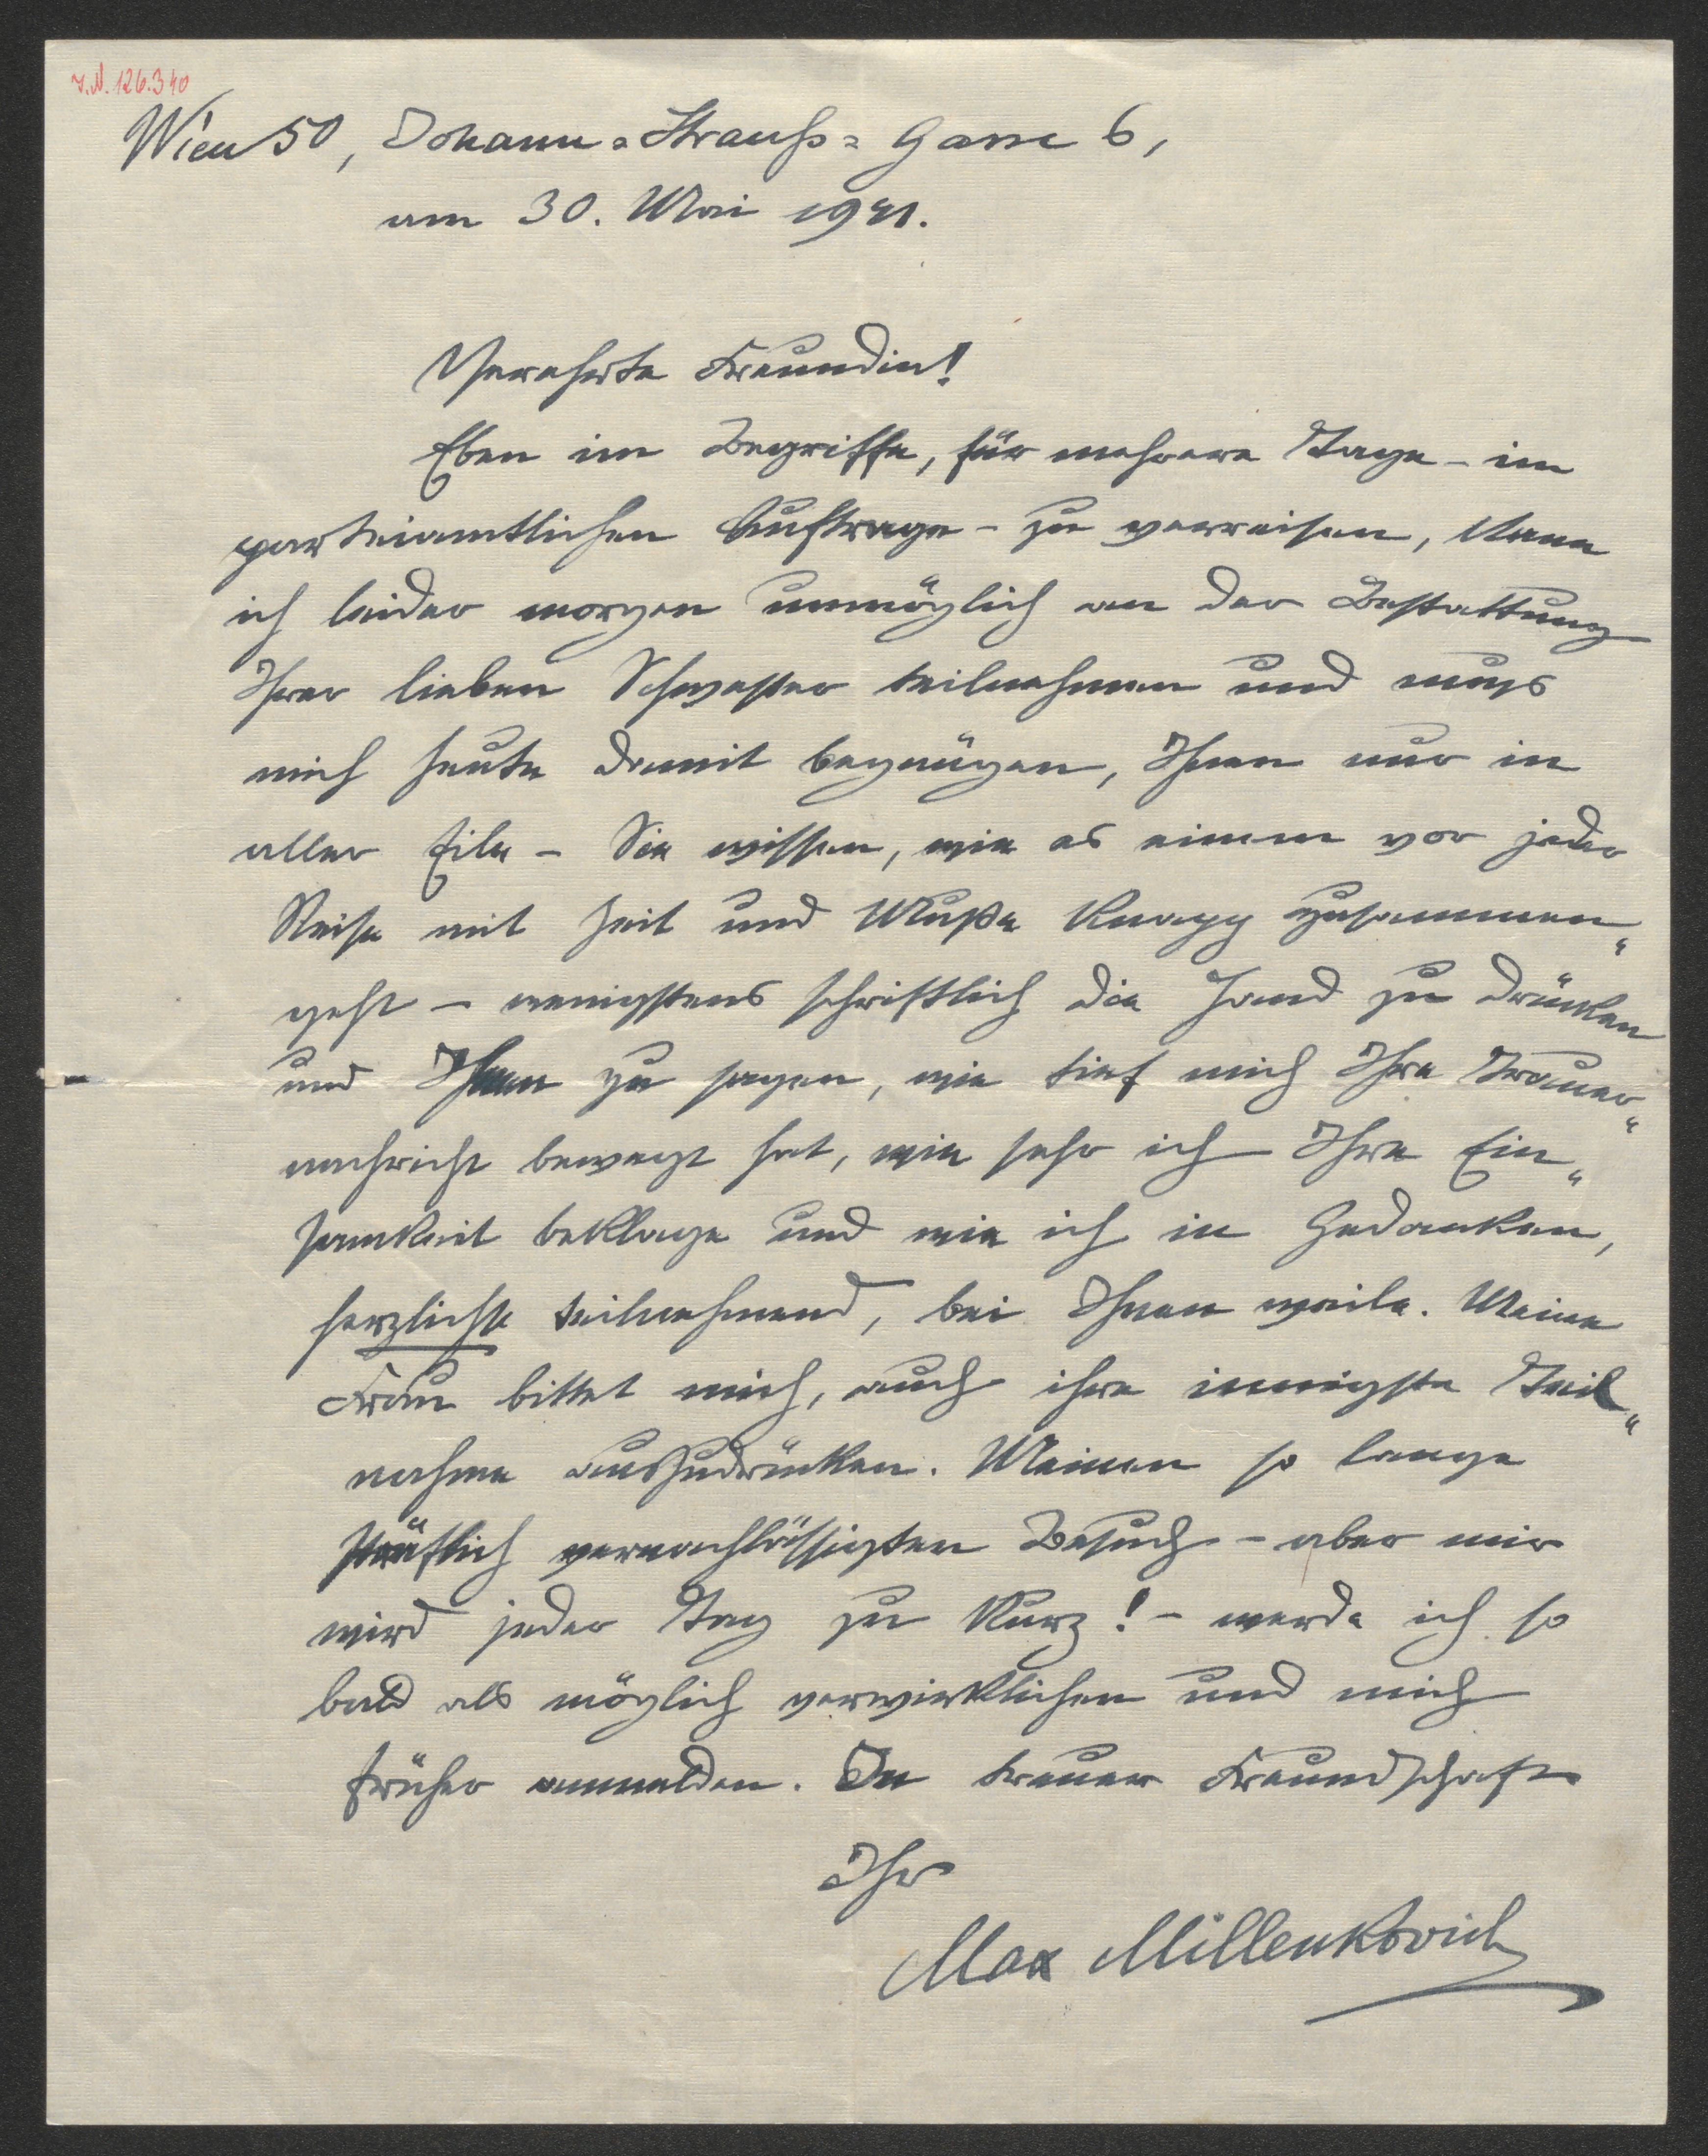 J.N. 126.340
Wien 50, Johann-Strauß-Gasse 6,
am 30. Mai 1941.
Verehrte Freundin!
Eben im Begriffe, für mehrere Tage - im
parteiamtlichen Auftrage - zu verreisen, kann
ich leider morgen unmöglich an der Bestattung
Ihrer lieben Schwester teilnehmen und muss
mich heute damit begnügen, Ihnen nur in
aller Eile - Sie wissen, wie es einem vor jeder
Reise mit Zeit und Muße knapp zusammen-
geht - wenigstens schriftlich die Hand zu drücken
und Ihnen zu sagen, wie tief mich Ihre Trauer-
nachricht bewegt hat, wie sehr ich Ihre Ein-
samkeit beklage und wie ich in Gedanken,
herzlichst teilnehmend, bei Ihnen weile. Meine
Frau bittet mich, auch ihre innigste Teil-
nahme auszudrücken. Meinen so lange
sträflich vernachlässigten Besuch - aber mir
wird jeder Tag zu kurz! - werde ich so
bald als möglich verwirklichen und mich
früher anmelden. In treuer Freundschaft
Ihr
Max Millenkovich